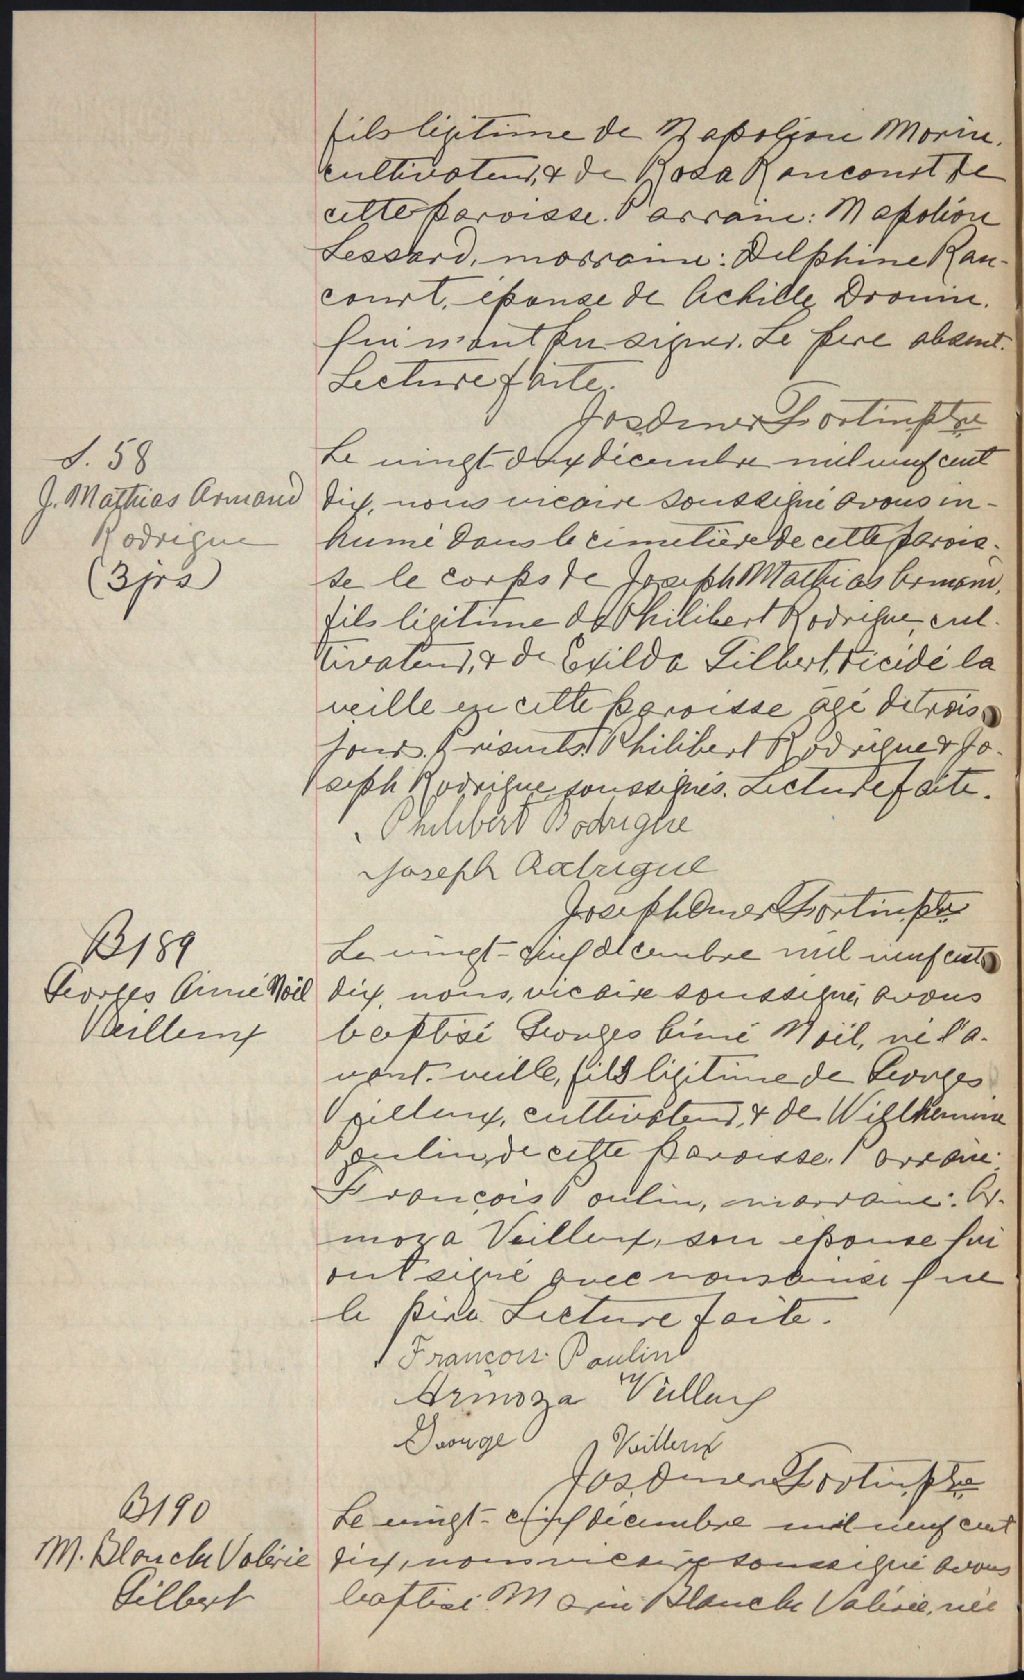 fils légitime de Napoléon Morin,
cultivateur, & de Rosa Rancourt de
cette paroisse. Parrain: Napoléon
Lessard, marraine: Delphine Ran-
court, épouse de Achille Drouin.
qui n'ont pu signer. Le père absent.
Lecture faite.
Jos. Omer Fortin ptre
S. 58
J. Mathias Armand
Rodrigue
(3 jrs)
Le vingt-deux décembre mil neuf cent
dix, nous vicaire soussigné avons in-
humé dans le cimetière de cette parois-
se le corps de Joseph Mathias Armand,
fils légitime de Philibert Rodrigue, cul-
tivateur, & de Exilda Gilbert, décédé la
veille en cette paroisse âgé de trois
jours. Présents: Philibert Rodrigue & Jo-
seph Rodrigue soussignés. Lecture faite.
Philibert Rodrigue
Joseph Rodrigue
Joseph Omer Fortin ptre
B189
Georges Aimé Noël
Veilleux
Le vingt-cinq décembre mil neuf cent
dix, nous, vicaire soussigné, avons
baptisé Georges Aimé Noël, né l'a-
vant-veille, fils légitime de Georges
Veilleux, cultivateur, & de Wilhemine
Poulin, de cette paroisse. Parrain:
François Poulin, marraine: Ar-
moza Veilleux, son épouse qui
ont signé avec nous ainsi que
le père. Lecture faite.
François Poulin
Armoza Veilleux
George Veilleux
Jos. Omer Fortin ptre
B190
M. Blanche Valérie
Gilbert
Le vingt-cinq décembre mil neuf cent
dix, nous vicaire soussigné avons
baptisé Marie Blanche Valérie, née